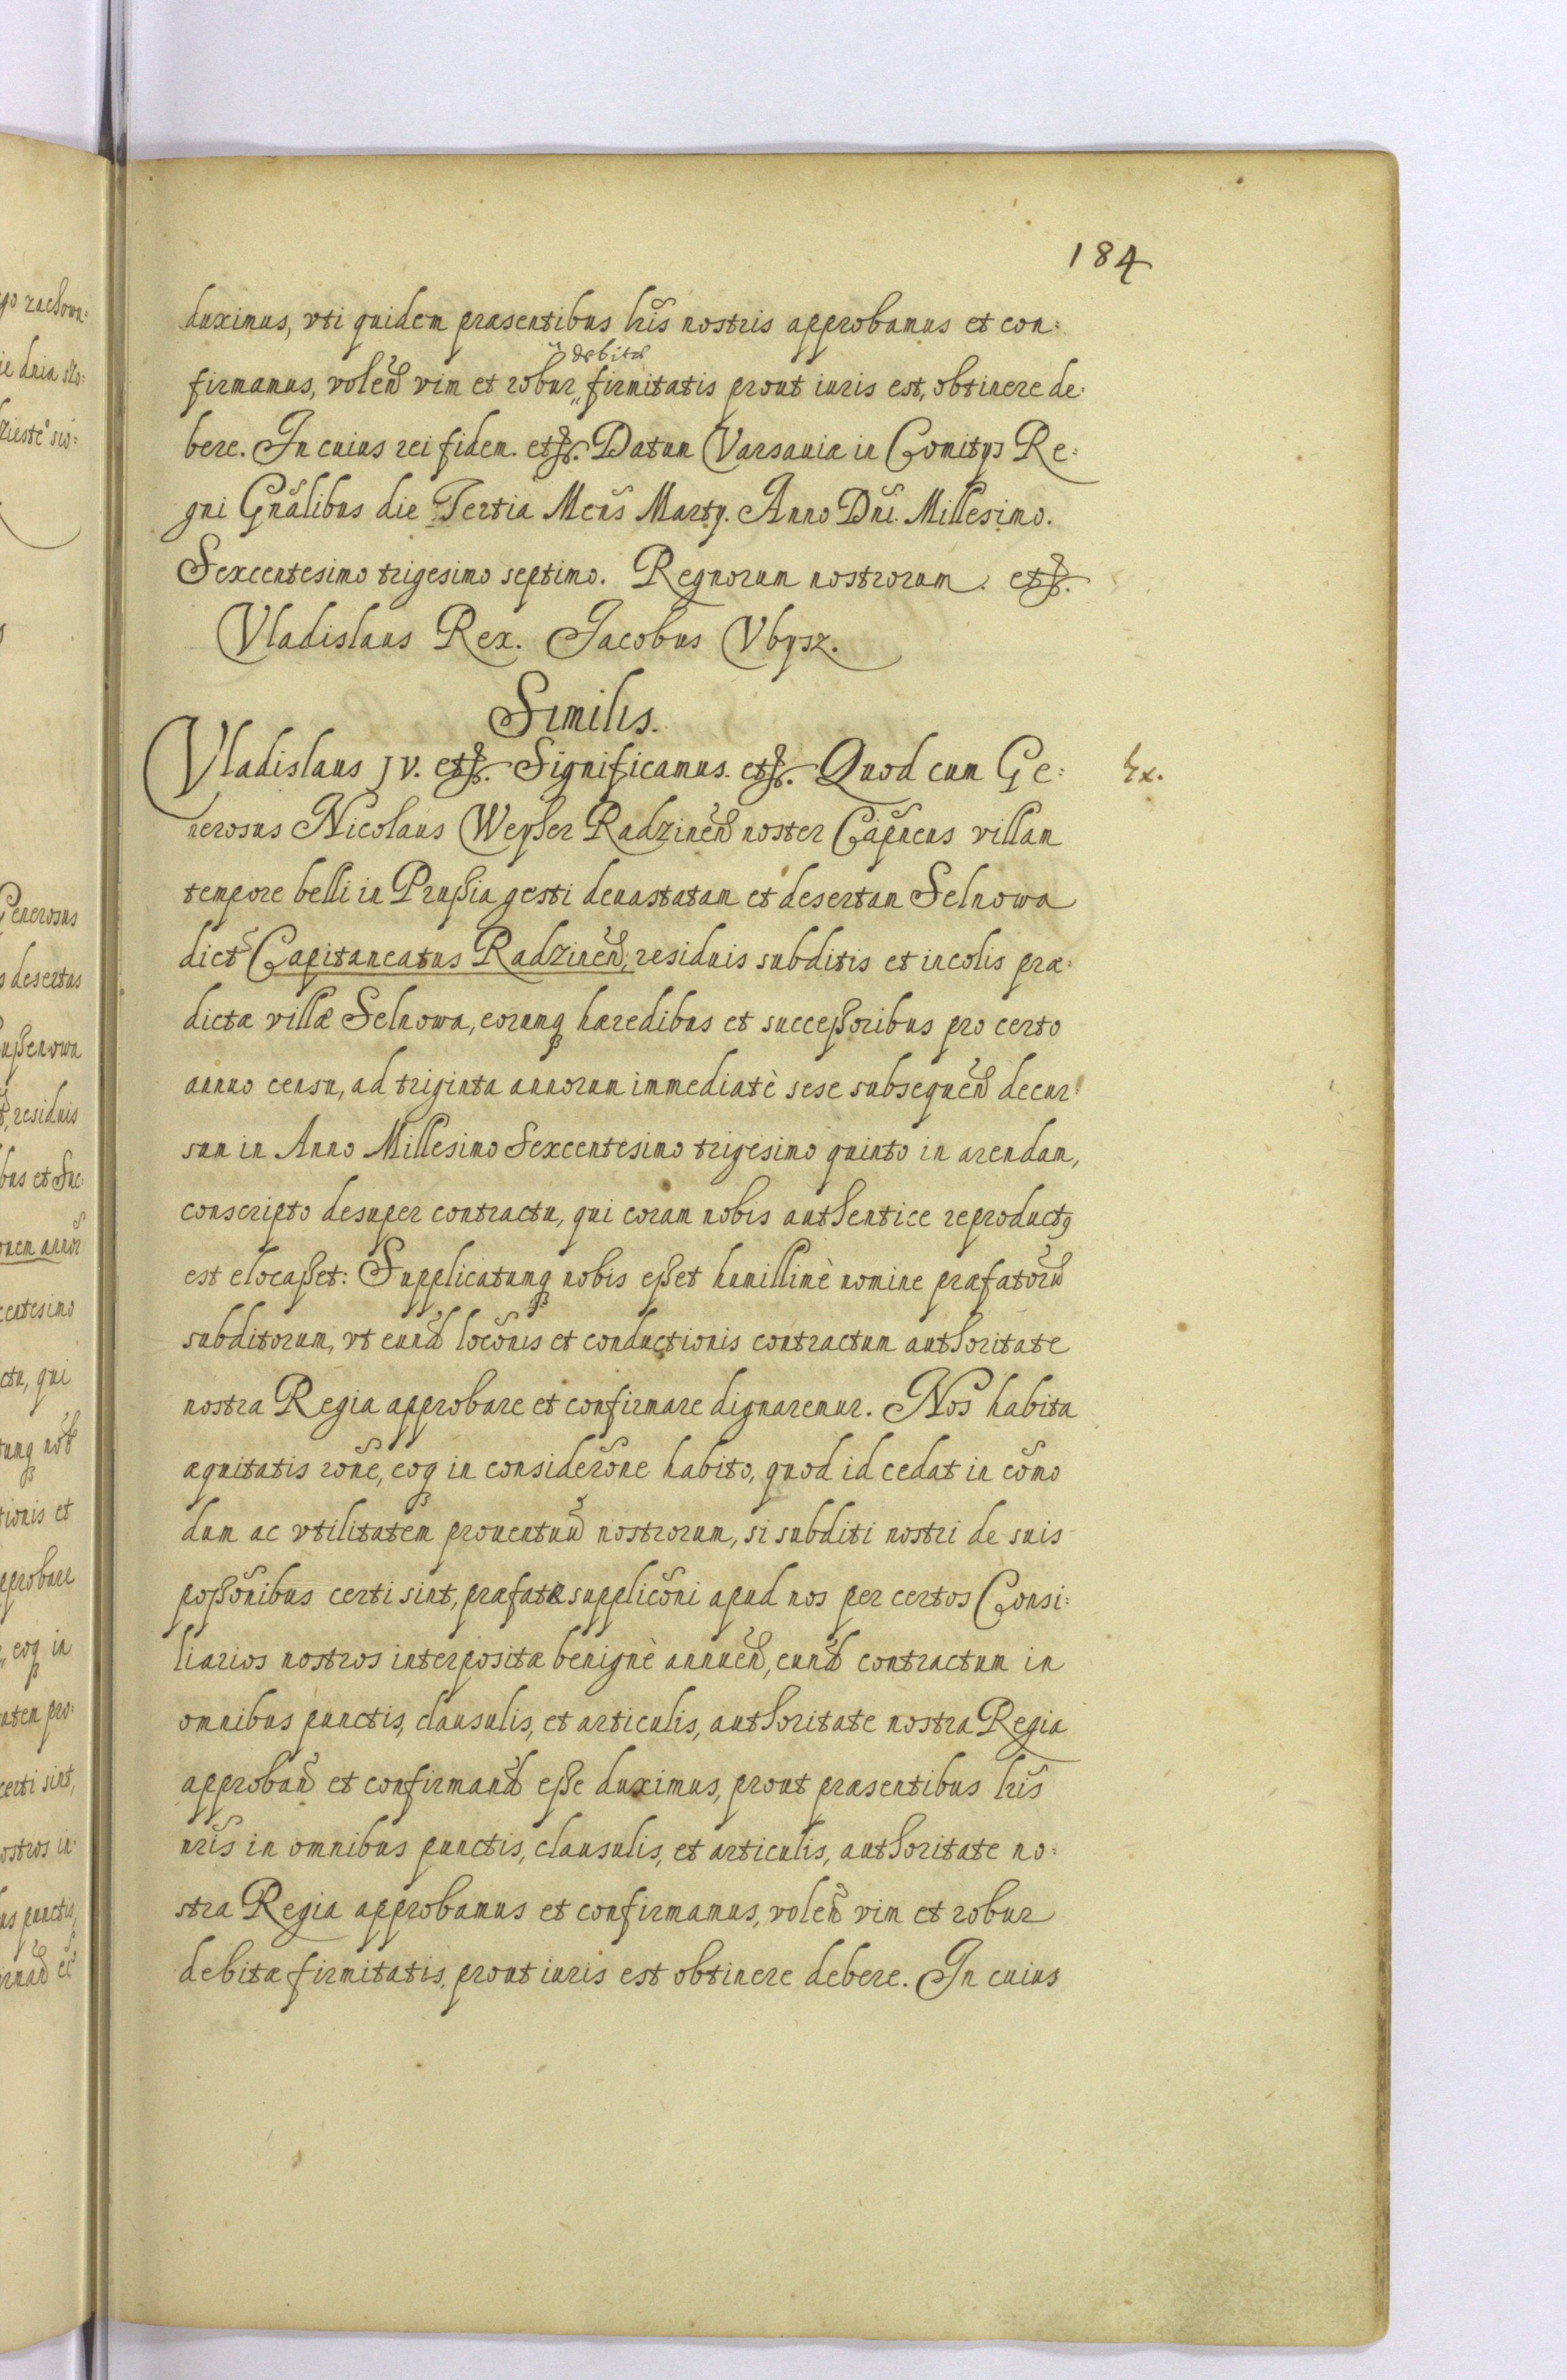 184
duximus, vti quidem præsentibus lr̃is nostris approbamus et con:
debitæ
firmamus, voleñ vim et robur „ firmitatis prout iuris est, obtinere de:
bere. In cuius rei fidem. etc. Datum Varsauiæ in Comitijs Re:
gni Gñalibus die Tertia Meñs Martij. Anno Dñi. Millesimo.
Sexcentesimo trigesimo septimo. Regnorum nostrorum. etc.
Vladislaus Rex. Jacobus Vbysz.
Similis.
Vladislaus IV. etc. Significamus. etc. Quod cum Ge:
Ex.
nerosus Nicolaus Weyher Radzineñ noster Capñeus villam
tempore belli in Prußia gesti deuastatam et desertam Selnowa
dict Capitaneatus Radzineñ, residuis subditis et incolis præ:
dictæ villæ Selnowa, eorumq hæredibus et succeßoribus pro certo
annuo censu, ad triginta annorum immediatè sese subsequeñ decur:
sum in Anno Millesimo Sexcentesimo trigesimo quinto in arendam,
conscripto desuper contractu, qui coram nobis authentice reproduct9
est elocaßet: Supplicatumq nobis eßet humillimè nomine præfatorũ
subditorum, vt eund locõnis et conductionis contractum authoritate
nostra Regia approbare et confirmare dignaremur. Nos habita
æquitatis rõne, eoq in considerõne habito, quod id cedat in cõmo
dum ac vtilitatem prouentuũ nostrorum, si subditi nostri de suis
poßõnibus certi sint, præfatæ supplicõni apud nos per certos Consi:
liarios nostros interpositæ benignè annueñ, eund contractum in
omnibus punctis, clausulis, et articulis, authoritate nostra Regia
approbañ et confirmand eße duximus, prout præsentibus lr̃is
nr̃is in omnibus punctis, clausulis, et articulis, authoritate no:
stra Regia approbamus et confirmamus, voleñ vim et robur
debitæ firmitatis, prout iuris est obtinere debere. In cuius